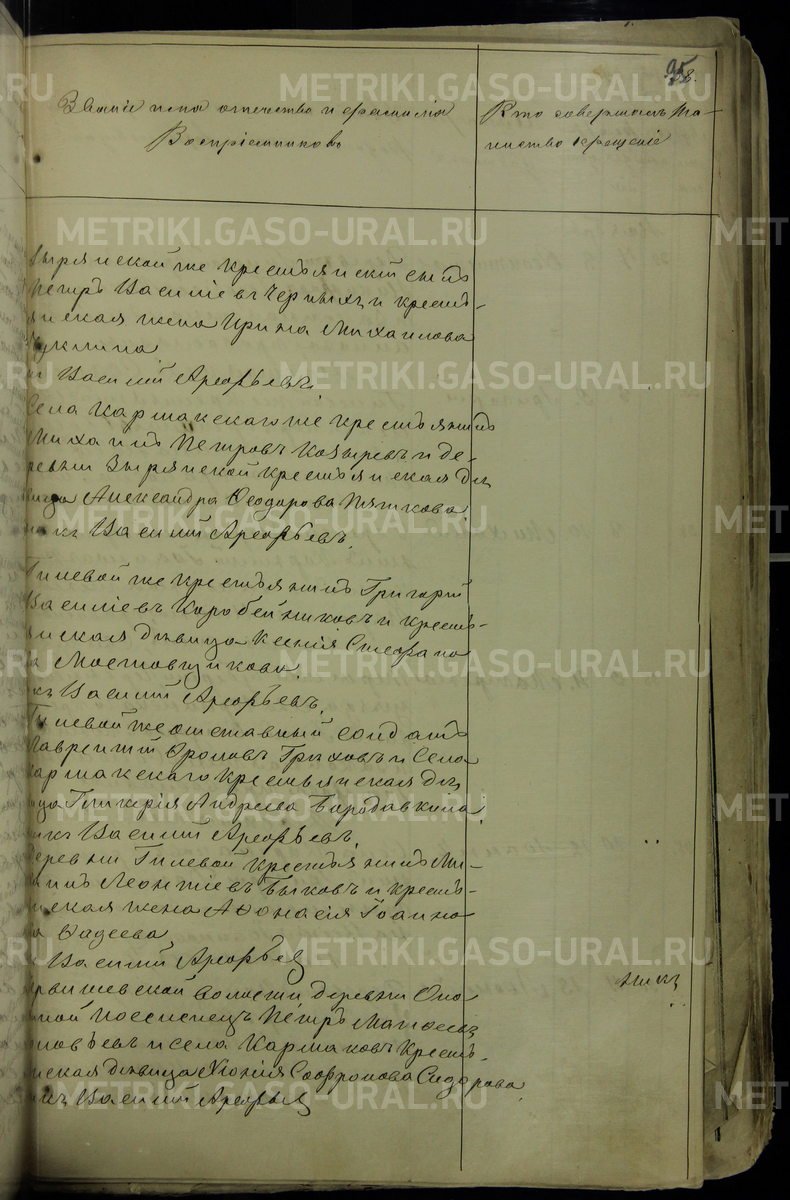 95
Званіе имя отечество и фамилія
Воспріемниковъ
Кто совершалъ та-
инство крещенія
Зырянской же крестьянскій сынъ
Петръ Василіевъ Черныхъ и кресть-
янская жена Ирина Михаилова
Куклина
Василій Арефьевъ
Села Кармакскаго же крестьянинъ
Михаилъ Петровъ Козыревъ и де-
ревни Зырянской крестьянская дѣ
вица Александра Ѳеодорова Пяткова
Василій Арефьевъ.
Гилевой же крестьянинъ Григорій
Василіевъ Коробейниковъ и кресть-
янская дѣвица Ксенія Стефано
ва Мостовщикова
Василій Арефьевъ.
Гилевой же отставный солдатъ
Лаврентій Фроловъ Гриховъ и Села
Кармакскаго крестьянская дѣ
вица Гликерія Андреева Бородавкина
Василій Арефьевъ.
Деревни Гилевой крестьянинъ Ми-
хаилъ Леонтіевъ Быковъ и кресть-
янская жена Аѳонасія Іоанно
ва Фадеева
Василій Арефьев
волости деревни
поселенецъ Петръ
и села Кармаковъ кресть-
янская дѣвица Хіонія Софронова Сидорова
Василій Арефьев
METRIKI.GASO-URAL.RU